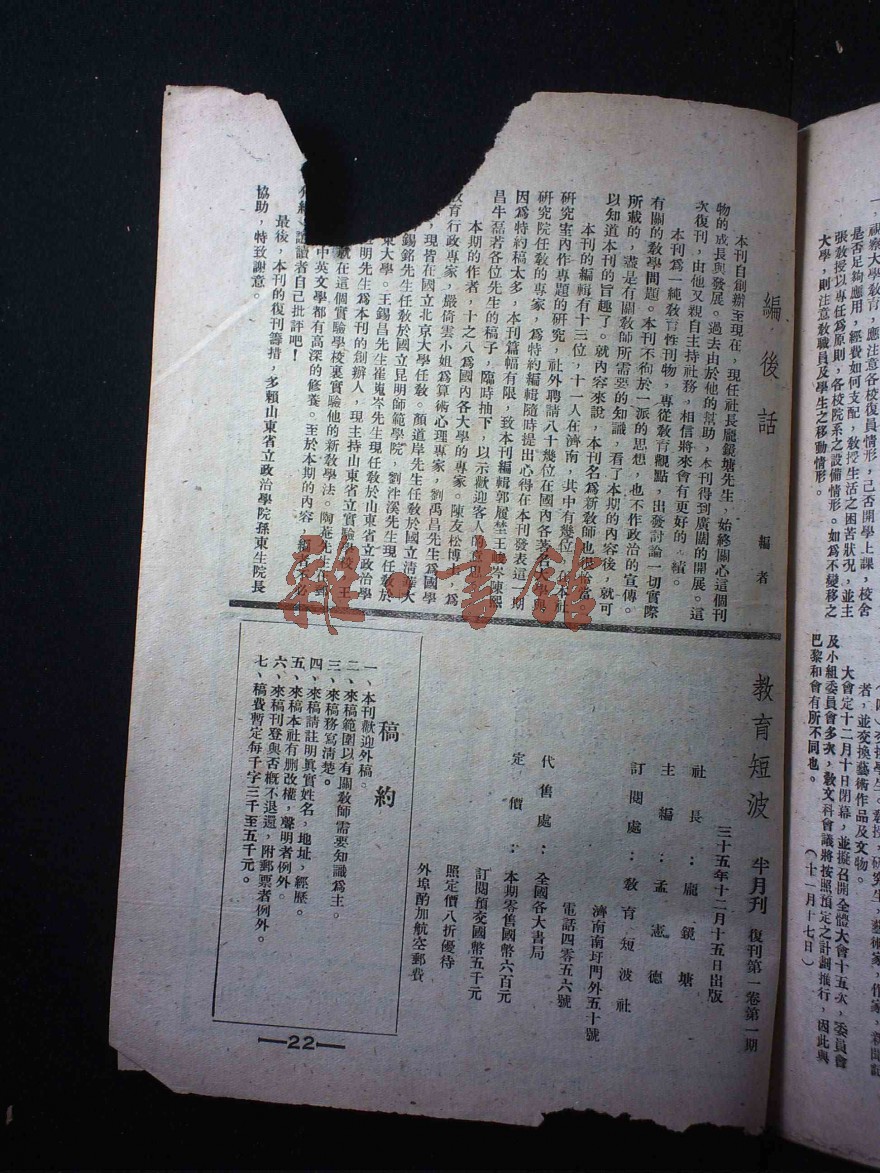 一，視察大學教育，應注意各校復員情形，已否開學上課，校舍
是否足夠應用，經費如何支配，教授生活之困苦狀況，並主
張教授以專任為原則，各校院系之設備情形。如為不變移之
大學，則注意教職員及學生之移動情形。
者，並交換藝術作品及文物。
大會定十二月十日閉幕，並擬召開全體大會十五次，委員會
及小組委員會多次，教文科會議將按照預定之計劃推行，因此與
巴黎和會有所不同也。
（十一月十七日）
編後話
編者
本刊自創辦至現在，現任社長龐鏡塘先生，始終關心這個刊
物的成長與發展。過去由於他的幫助，本刊得到廣闊的開展。這
次復刊，由他又親自主持社務，相信將來會有更好的成績。
本刊為一純教育性刊物，專從教育觀點，出發討論一切實際
有關的教學問題。本刊不拘於一派的思想，也不作政治的宣傳。
所載的，盡是有關教師所需要的知識，看了本期的內容後，就可
以知道本刊的旨趣了。就內容來說，本刊名為新教師也很恰當
本刊的編輯有十三位，十一人在濟南，其中有幾位 在本社
研究室內作專題的研究，社外聘請八十幾位在國內各著名大學與
研究院任教的專家，為特約編輯隨時提出心得在本刊發表這一期
因為特約稿太多，本刊篇幅有限，致本刊編輯郭履堃王峻岑陳熙
昌牛磊著各位先生的稿子，臨時抽下，以示歡迎客人的意思
本期的作者，十之八為國內各大學的專家。陳友松博士，為
教育行政專家，嚴倚雲小姐為算術心理專家，劉禹昌先生為國學
，現皆在國立北京大學任教。顏道岸先生任教於國立清華大
錫銘先生任教於國立昆明師範學院，劉泮溪先生現任教於
東大學。王錫昌先生崔嵬岑先生現任教於山東省立政治學
明先生為本刊的創辦人，現主持山東省立實驗學校，王
就在這個實驗學校裏實驗他的新教學法。陶菴先生
中英文學都有高深的修養。至於本期的內容，
介紹，請讀者自己批評吧！
最後，本刊的復刊籌措，多賴山東省立政治學院孫東生院長
協助，特致謝意。
教育短波 半月刊 復刊第一卷第一期
三十五年十二月十五日出版
社長：龐鏡塘
主編：孟憲德
訂閱處：教育短波社
濟南南圩門外五十號
電話四零五六號
代售處：全國各大書局
定價：本期零售國幣六百元
訂閱預交國幣五千元
照定價八折優待
外埠酌加航空郵費
稿約
一、本刊歡迎外稿。
二、來稿範圍以有關教師需要知識為主。
三、來稿務寫清楚。
四、來稿請註明真實姓名，地址，經歷。
五、來稿本社有刪改權，聲明者例外。
六、來稿刊登與否概不退還，附郵票者例外。
七、稿費暫定每千字三千至五千元。
—22—
雜書館